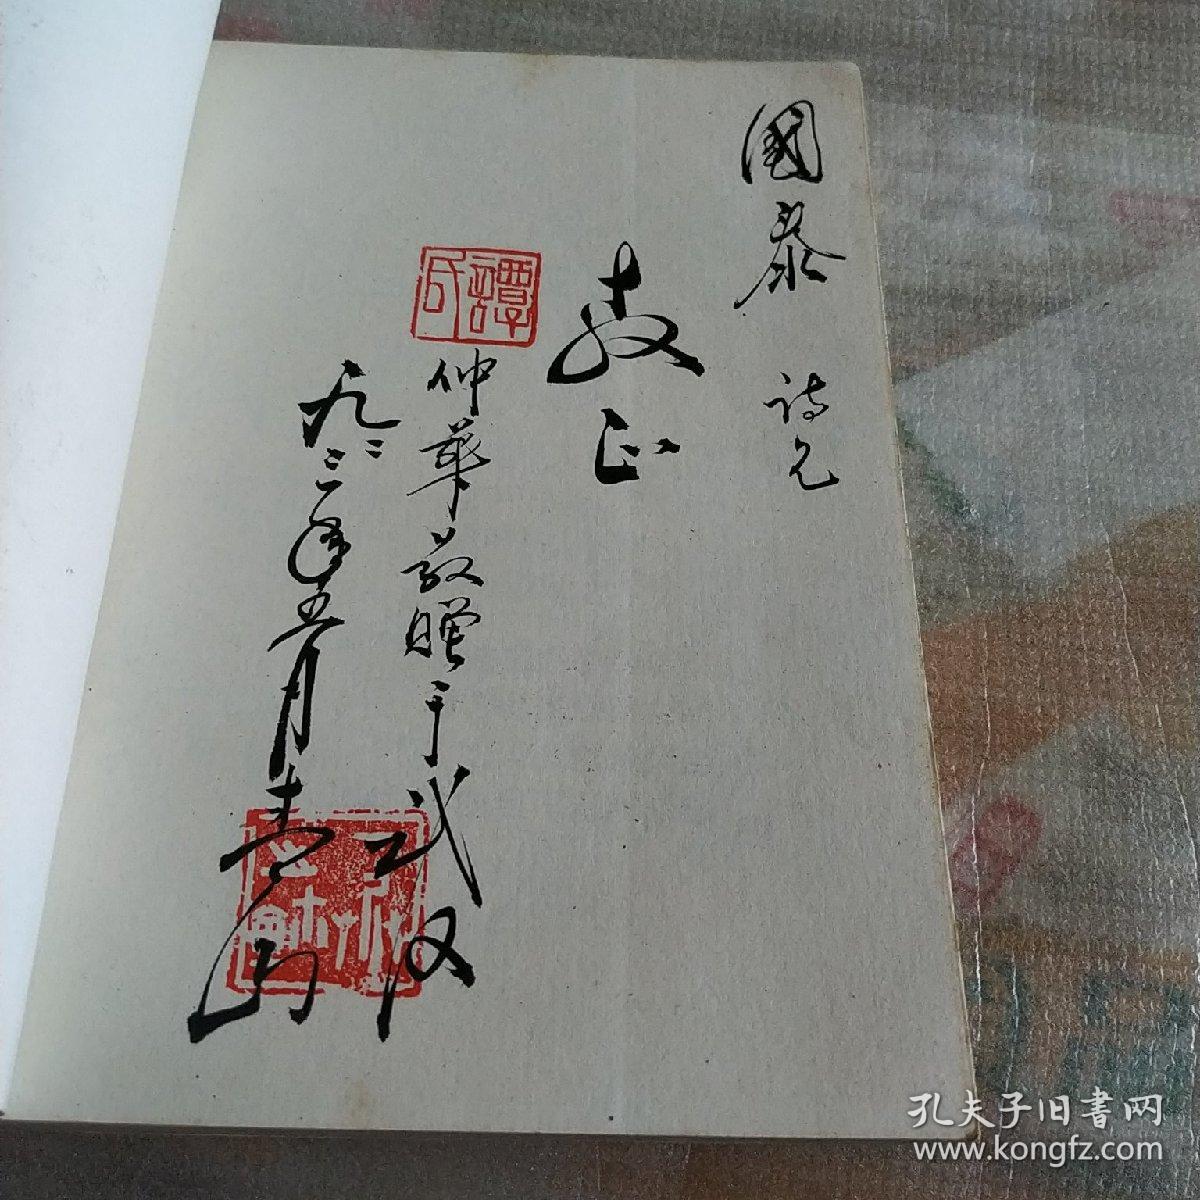 國泰 诗兄
教正
譚氏
仲華敬赠于武汉
九二年五月青山
孔夫子旧書网
www.kongfz.com